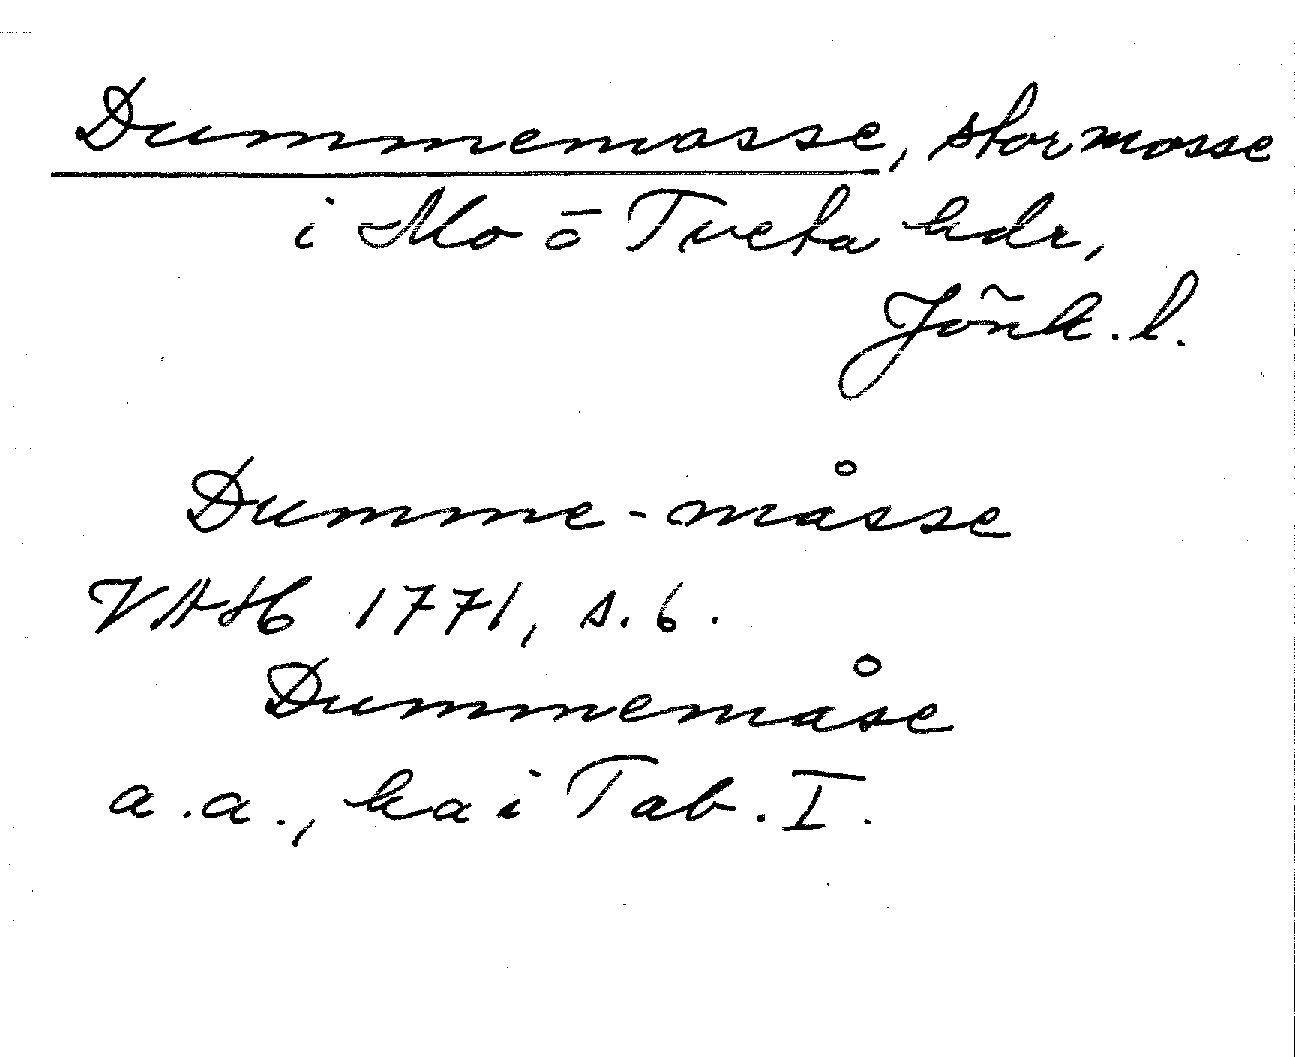 Dummemosse, stor mosse
i Mo o Tveta hdr,
Jönk. l.
Dumme-måsse
VAH 1771, s. 6.
Dummemåse
a. a., ka i Tab. I.